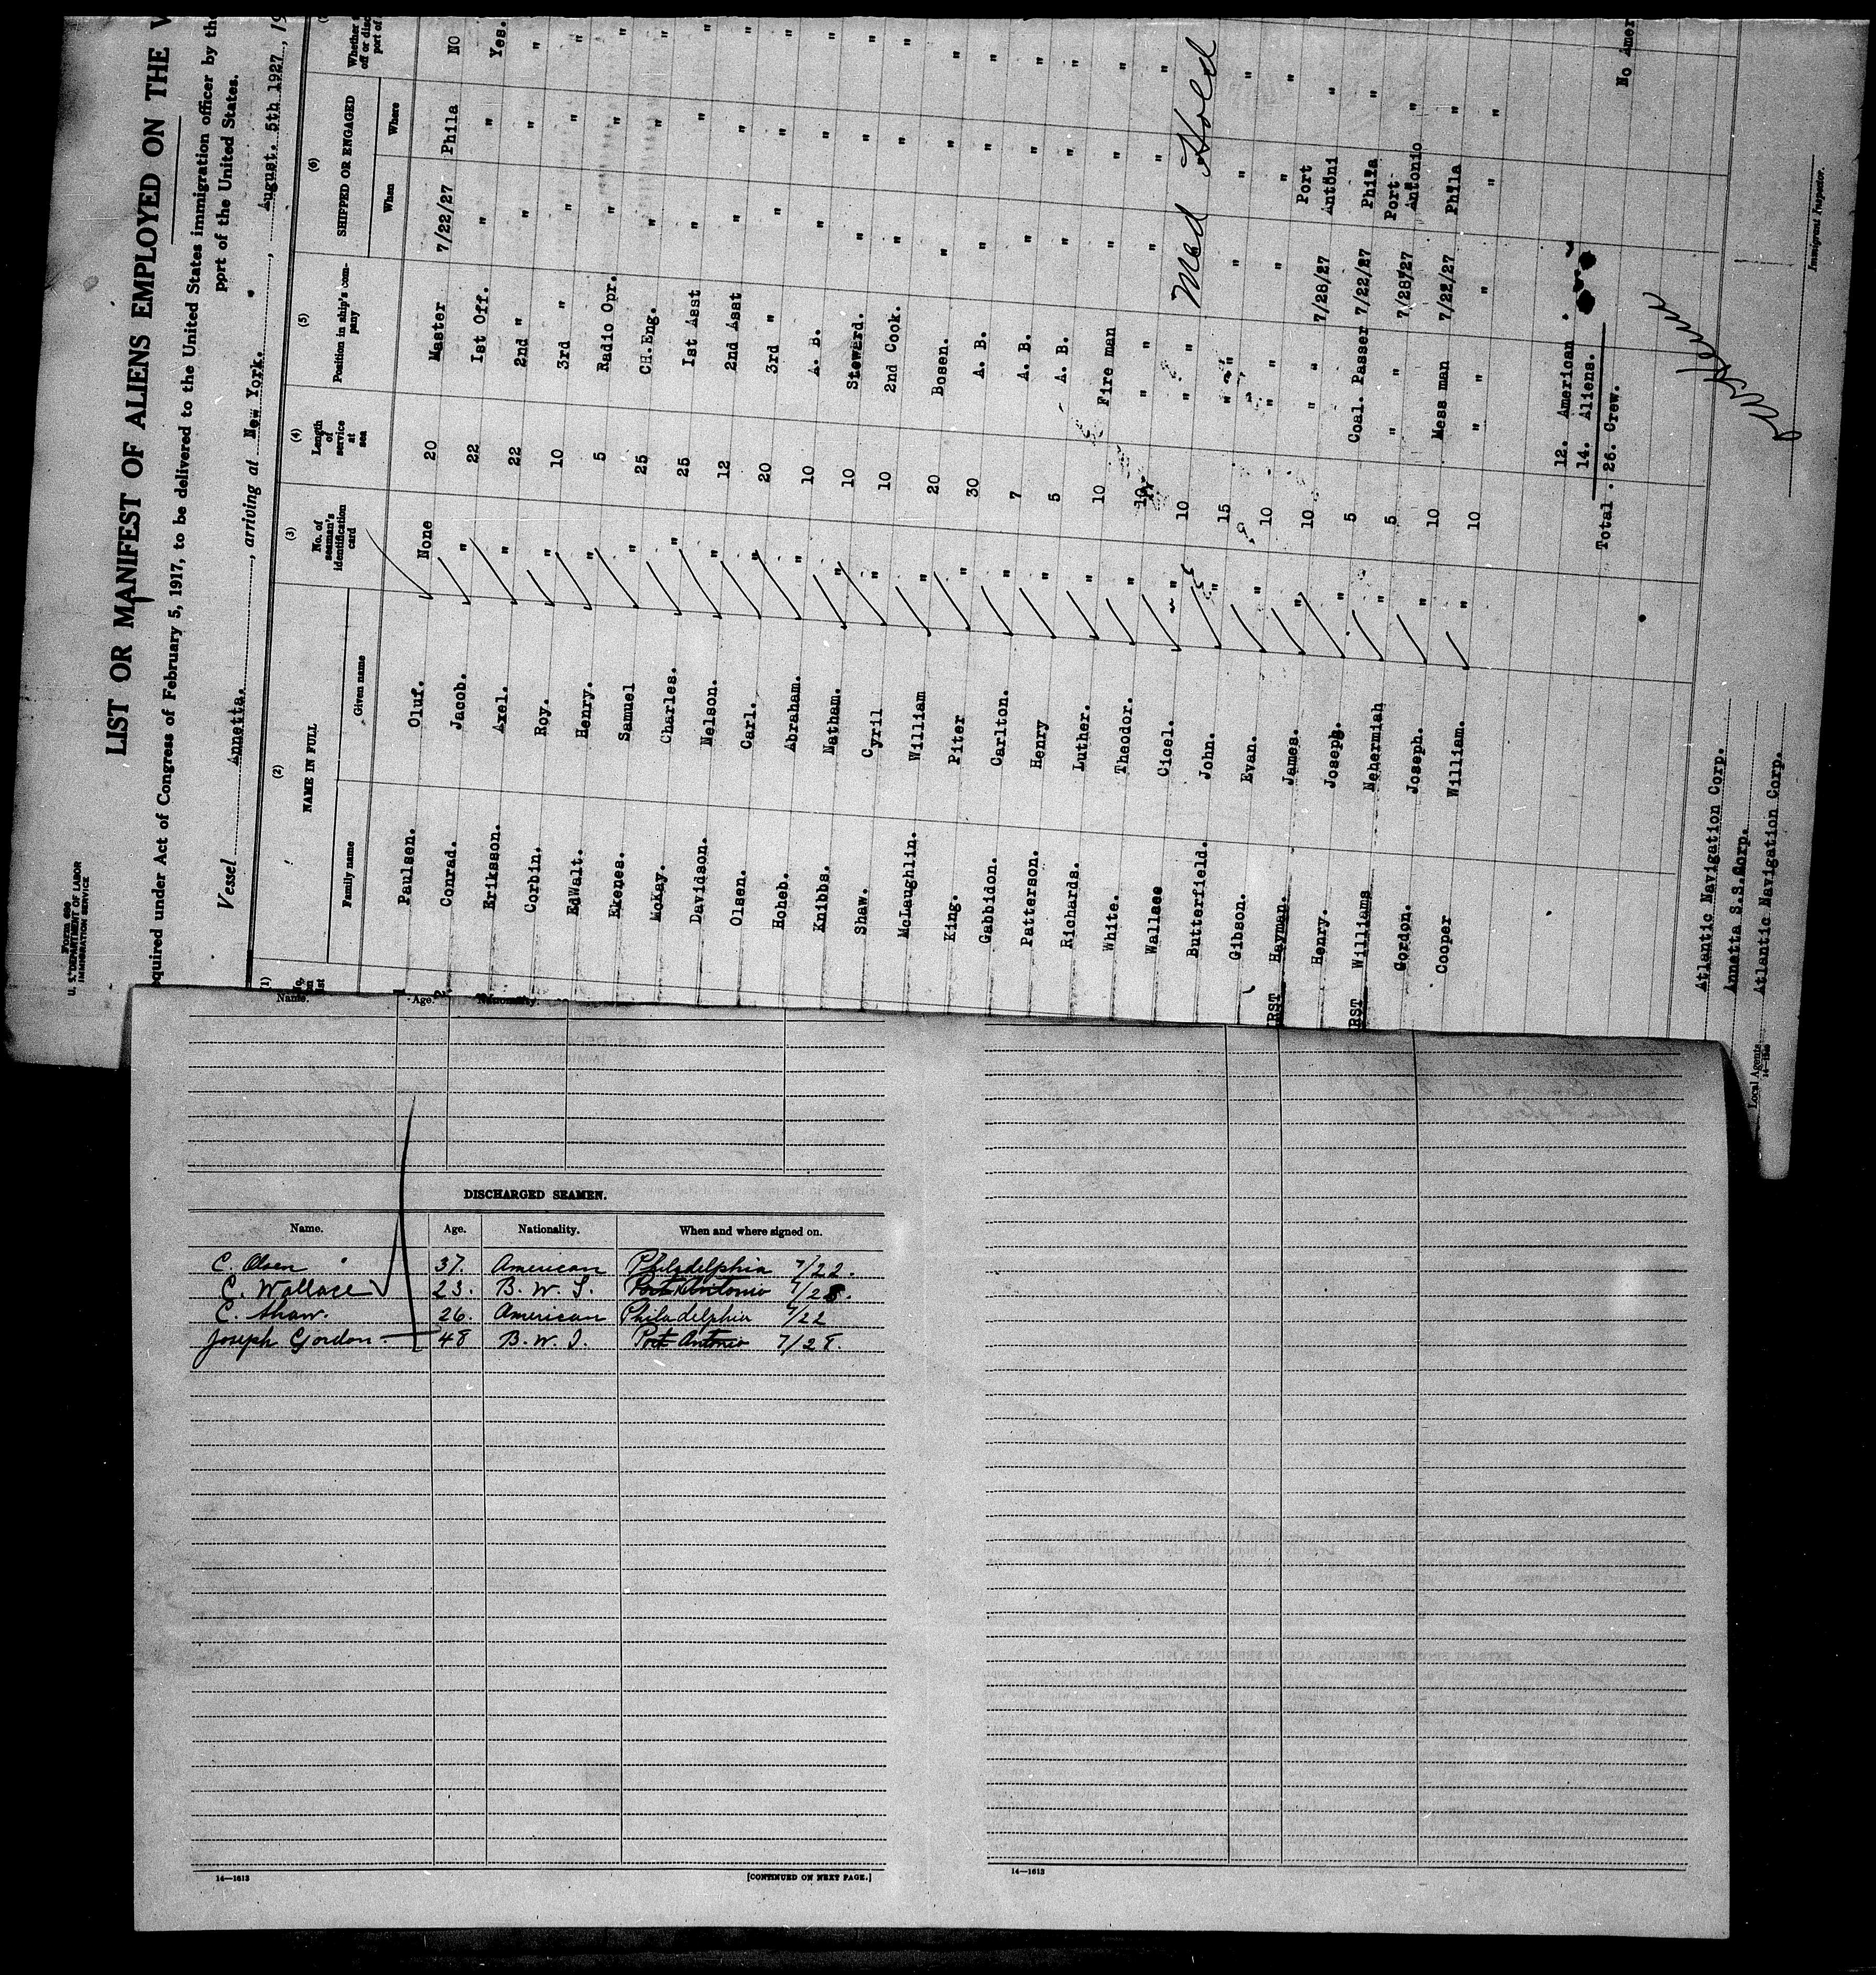 Form 699
U. S. DEPARTMENT OF LABOR
IMMIGRATION SERVICE
LIST OR MANIFEST OF ALIENS EMPLOYED ON THE
equired under Act of Congress of February 5, 1917, to be delivered to the United States immigration officer by the
pprt of the United States.
Vessel Annetta. , arriving at New York. , August. 5th 1927, 19
(1) (2) (3) (4) (5) (6)
NAME IN FULL No. of seaman's identification card Length of service at sea Position in ship's company SHIPPED OR ENGAGED Whether
Family name Given name When Where
Paulsen. Oluf. None 20 Master 7/22/27 Phila NO
Conrad. Jacob. " 22 1st Off. " " Yes.
Eriksson. Axel. " 22 2nd " " " "
Corbin. Roy. " 10 3rd " " " "
EdWalt. Henry. " 5 Radio Opr. " " "
Ekenes. Samuel " 25 CH.Eng. " " "
McKay. Charles. " 25 1st Asst " " "
Davidson. Nelson. " 12 2nd Asst " " "
Olsen. Carl. " 20 3rd " " " "
Hoheb. Abraham. " 10 A. B. " " "
Knibbs. Natham. " 10 Steward. " " "
Shaw. Cyril " 10 2nd Cook. " " "
McLaughlin. William " 20 Bosen. " " "
King. Piter " 30 A. B. " " "
Gabbidon. Carlton. " 7 A. B. " " "
Patterson. Henry " 5 A. B. " " "
Richards. Luther. " 10 Fire man " " "
White. Theodor. " 10 " " " "
Wallace Cicel. " 10 " Med Held
Butterfield. John. " 15 " " " "
Gibson. Evan. " 10 " " " "
Hayman. James. " 10 " 7/28/27 Port Antoni "
Henry. Joseph. " 5 Coal. Passer 7/22/27 Phila "
Williams Nehermiah " 5 " 7/28/27 Port Antonio "
Gordon. Joseph. " 10 Mess man 7/22/27 Phila "
Cooper William. " 10 " " " "
12. American .
14. Aliens.
Total . 26. Crew.
No Amer
Atlantic Navigation Corp.
Annetta S.S.Corp.
Local Agents Atlantic Navigation Corp.
Immigrant Inspector.
Name. Age. Nationality.
DISCHARGED SEAMEN.
Name. Age. Nationality. When and where signed on.
C. Olsen 37. American Philadelphia 7/22.
C. Wallace 23. B. W. I. Port Antonio 7/28.
C. Shaw. 26. American Philadelphia 7/22
Joseph Gordon 48 B. W. I. Port Antonio 7/28.
14—1613 [CONTINUED ON NEXT PAGE.]
14—1613